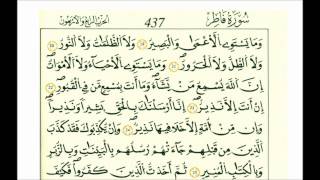 سُورَةُ فَاطِرٍ ٤٣٧ الحزب الرابع والأربعون
وَمَا يَسْتَوِي الْأَعْمَىٰ وَالْبَصِيرُ ١٩ وَلَا الظُّلُمَاتُ وَلَا النُّورُ ٢٠
وَلَا الظِّلُّ وَلَا الْحَرُورُ ٢١ وَمَا يَسْتَوِي الْأَحْيَاءُ وَلَا الْأَمْوَاتُ
إِنَّ اللَّهَ يُسْمِعُ مَنْ يَشَاءُ وَمَا أَنْتَ بِمُسْمِعٍ مَنْ فِي الْقُبُورِ ٢٢
إِنْ أَنْتَ إِلَّا نَذِيرٌ ٢٣ إِنَّا أَرْسَلْنَاكَ بِالْحَقِّ بَشِيرًا وَنَذِيرًا
وَإِنْ مِنْ أُمَّةٍ إِلَّا خَلَا فِيهَا نَذِيرٌ ٢٤ وَإِنْ يُكَذِّبُوكَ فَقَدْ كَذَّبَ
الَّذِينَ مِنْ قَبْلِهِمْ جَاءَتْهُمْ رُسُلُهُمْ بِالْبَيِّنَاتِ وَبِالزُّبُرِ
وَبِالْكِتَابِ الْمُنِيرِ ٢٥ ثُمَّ أَخَذْتُ الَّذِينَ كَفَرُوا فَكَيْفَ